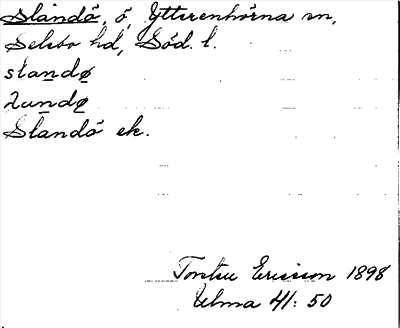 Slandö, ö, Ytterenhörna sn,
Selebo hd, Söd. l.
slandø
Slandö ek.
Torsten Ericsson 1898
Ulma 41: 50